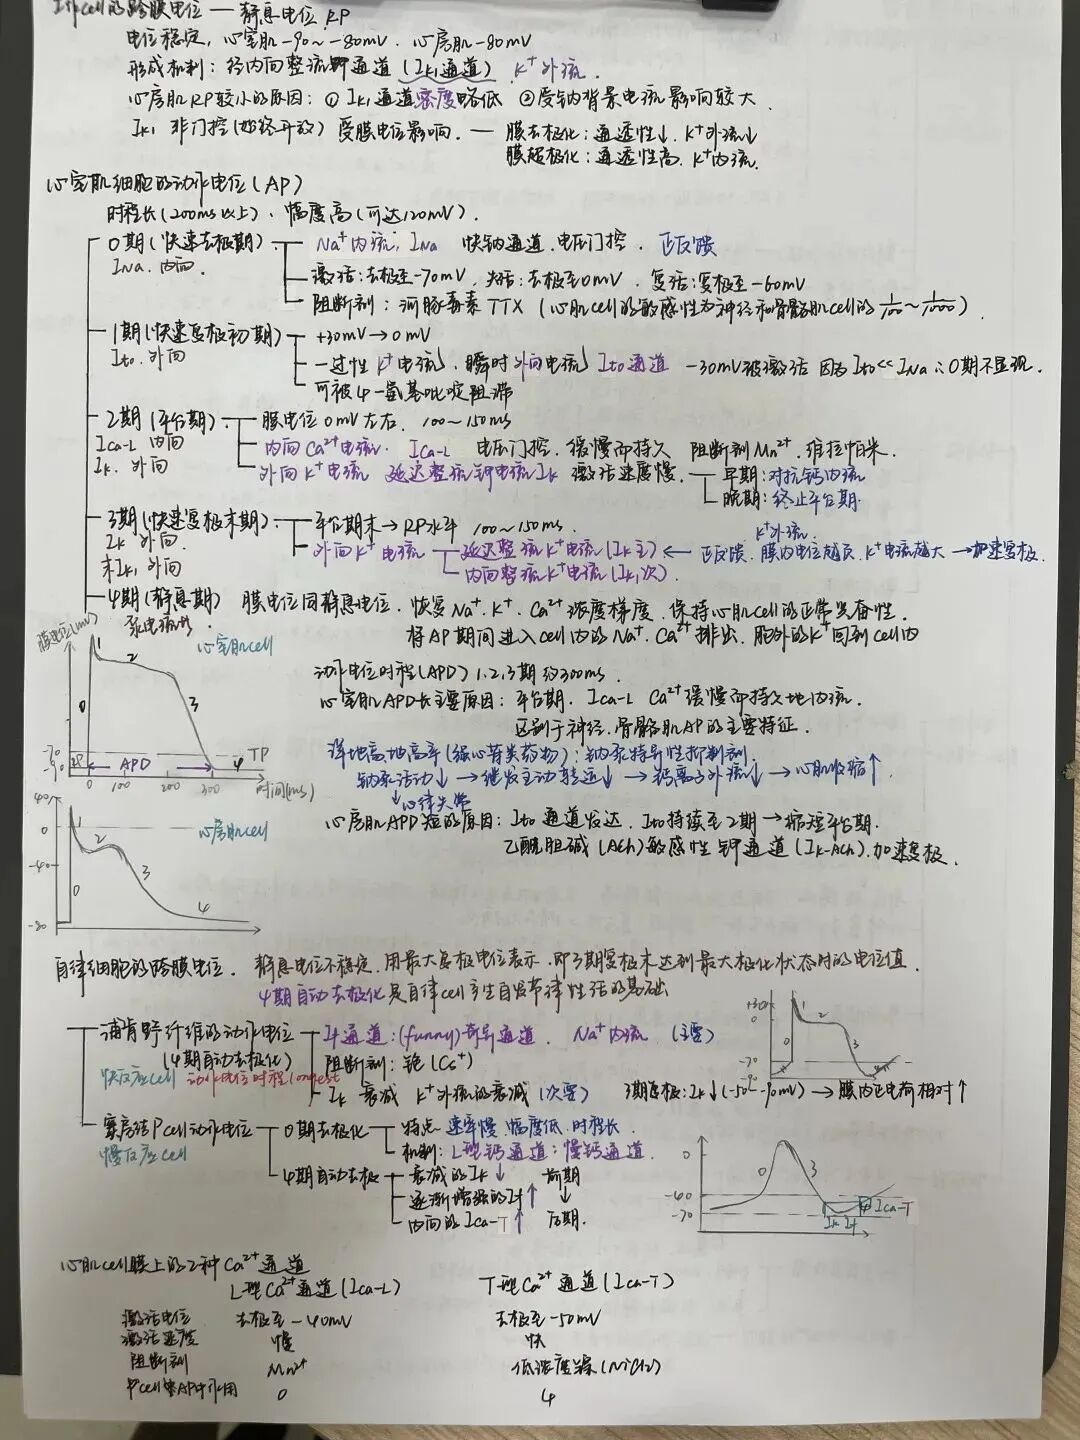 工作cell的跨膜电位 — 静息电位 RP
电位稳定, 心室肌-90~-80mV. 心房肌-80mV
形成机制: 经内向整流钾通道 (IK1通道) K⁺外流.
心房肌RP较小的原因: ① IK1通道密度略低 ②受钠背景电流影响较大.
IK1 非门控(始终开放) 受膜电位影响. — 膜去极化: 通透性↓. K⁺外流↓
膜超极化: 通透性高. K⁺内流.
心室肌细胞的动作电位(AP)
时程长(200ms以上)、幅度高(可达120mV).
0期(快速去极期) Na⁺内流, INa 快钠通道.电压门控. 正反馈
INa. 内向. 激活:去极至-70mV, 失活:去极至0mV, 复活:复极至-60mV
阻断剂: 河豚毒素 TTX (心肌cell的敏感性为神经和骨骼肌cell的 1/100~1/1000).
1期(快速复极初期) +30mV→0mV
Ito. 外向 一过性K⁺电流, 瞬时外向电流 Ito通道 -30mV被激活 因为Ito<<INa ∴0期不显现.
可被4-氨基吡啶阻滞
2期(平台期) 膜电位0mV左右. 100~150ms
ICa-L 内向 内向Ca²⁺电流. ICa-L 电压门控. 缓慢而持久 阻断剂Mn²⁺. 维拉帕米.
Ik. 外向 外向K⁺电流 延迟整流钾电流Ik 激活速度慢. 早期:对抗钙内流
晚期: 终止平台期.
3期(快速复极末期) 平台期末→RP水平 100~150ms.
K⁺外流.
Ik 外向. 外向K⁺电流 延迟整流K⁺电流(Ik主) ← 正反馈. 膜内电位越负. K⁺电流越大 →加速复极.
末IK1 外向 内向整流K⁺电流(IK1次).
4期(静息期) 膜电位同静息电位. 恢复Na⁺.K⁺.Ca²⁺浓度梯度. 保持心肌cell的正常兴奋性.
泵电流 将AP期间进入cell内的Na⁺.Ca²⁺排出. 胞外的K⁺回到cell内
膜电位(mV) 1 2 心室肌cell
0 3
-70
-90 RP APD 4 TP
0 100 200 300 时间(ms)
动作电位时程(APD) 1、2、3期约300ms.
心室肌APD长主要原因: 平台期. ICa-L Ca²⁺缓慢而持久地内流.
区别于神经.骨骼肌AP的主要特征.
洋地高.地高辛(强心苷类药物): 钠泵特异性抑制剂
钠泵活动↓ → 继发主动转运↓ → 钙离子外流↓ → 心肌收缩↑
↓心律失常
心房肌APD短的原因: Ito通道发达. Ito持续至2期→缩短平台期.
乙酰胆碱(ACh)敏感性钾通道(IK-ACh).加速复极.
40
0 1 2 心房肌cell
-40 0 3
-80 4
自律细胞的跨膜电位. 静息电位不稳定. 用最大复极电位表示. 即3期复极末达到最大极化状态时的电位值.
4期自动去极化是自律cell产生自发节律性活的基础
浦肯野纤维的动作电位 If通道:(funny)奇异通道. Na⁺内流 (主要)
(4期自动去极化) 阻断剂: 铯(Cs⁺)
快反应cell 动作电位时程longest
Ik 衰减 K⁺外流的衰减 (次要) 3期复极: Ik↓(-50~-90mV) → 膜内正电荷相对↑
+30
0 1 2
0 3
-70
-90
窦房结P cell动作电位 0期去极化 特点 速率慢.幅度低.时程长.
慢反应cell 机制: L型钙通道:慢钙通道.
4期自动去极 衰减的Ik↓ 前期
逐渐增强的If↑ ↓
内向的ICa-T↑ 后期.
0 0 3
-40 4 ICa-T
-70 Ik If
心肌cell膜上的2种Ca²⁺通道
L型Ca²⁺通道(ICa-L) T型Ca²⁺通道(ICa-T)
激活电位 去极至-40mV 去极至-50mV
激活速度 慢 快
阻断剂 Mn²⁺ 低浓度镍(NiCl₂)
P cell AP中作用 0 4